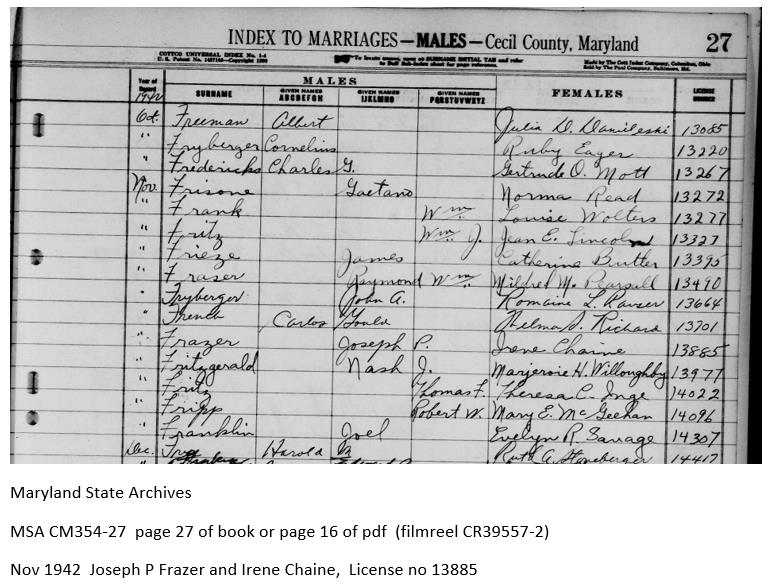 INDEX TO MARRIAGES—MALES—Cecil County, Maryland 27
COTTCO UNIVERSAL INDEX No. 1-4
To locate names, open at SURNAME INITIAL TAB and refer
Made by The Cott Index Company, Columbus, Ohio
Sold by The Paul Company, Baltimore, Md.
Year of
1942
MALES
SURNAME
GIVEN NAMES ABCDEFGH
GIVEN NAMES IJKLMNO
GIVEN NAMES PQRSTUVWXYZ
FEMALES
LICENSE NUMBER
Oct. Freeman Albert Julia D. Danileski 13085
" Fryberger Cornelius Ruby Eager 13220
" Fredericks Charles G. Gertrude O. Mott 13267
Nov. Frisone Gaetano Norma Read 13272
" Frank Wm Louise Wolters 13277
" Fritz Wm J. Jean E. Lincoln 13327
" Frieze James Catherine Butler 13395
" Fraser Raymond Wm Mildred M. Pearsall 13490
" Fryberger John A. Romaine L. 13664
" French Carlos Gould Thelma Richard 13701
" Frazer Joseph P. Irene Chaine 13885
" Fritzgerald Nash J. Marjorie H. Willoughby 13977
" Fritz Thomas F. Theresa C. Inge 14022
" Fripp Robert W. Mary E. McGeehan 14096
" Franklin Joel Evelyn R. Savage 14307
Dec. Harold Ruth A. Stoneberger 14417
Maryland State Archives
MSA CM354-27 page 27 of book or page 16 of pdf (filmreel CR39557-2)
Nov 1942 Joseph P Frazer and Irene Chaine, License no 13885